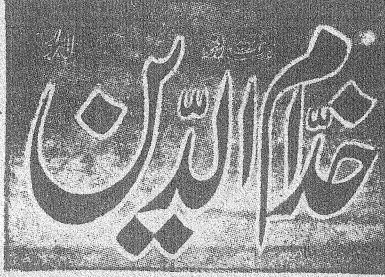 خدّام الدّین